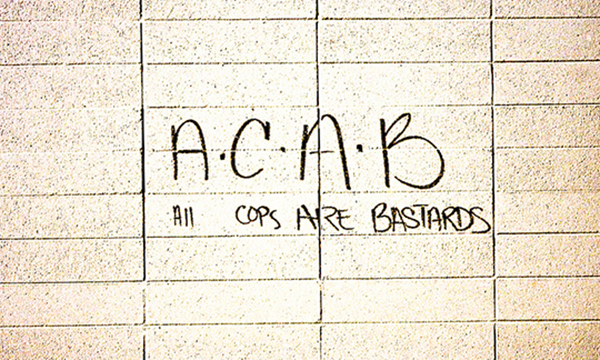 A.C.A.B
All COPS ARE BASTARDS